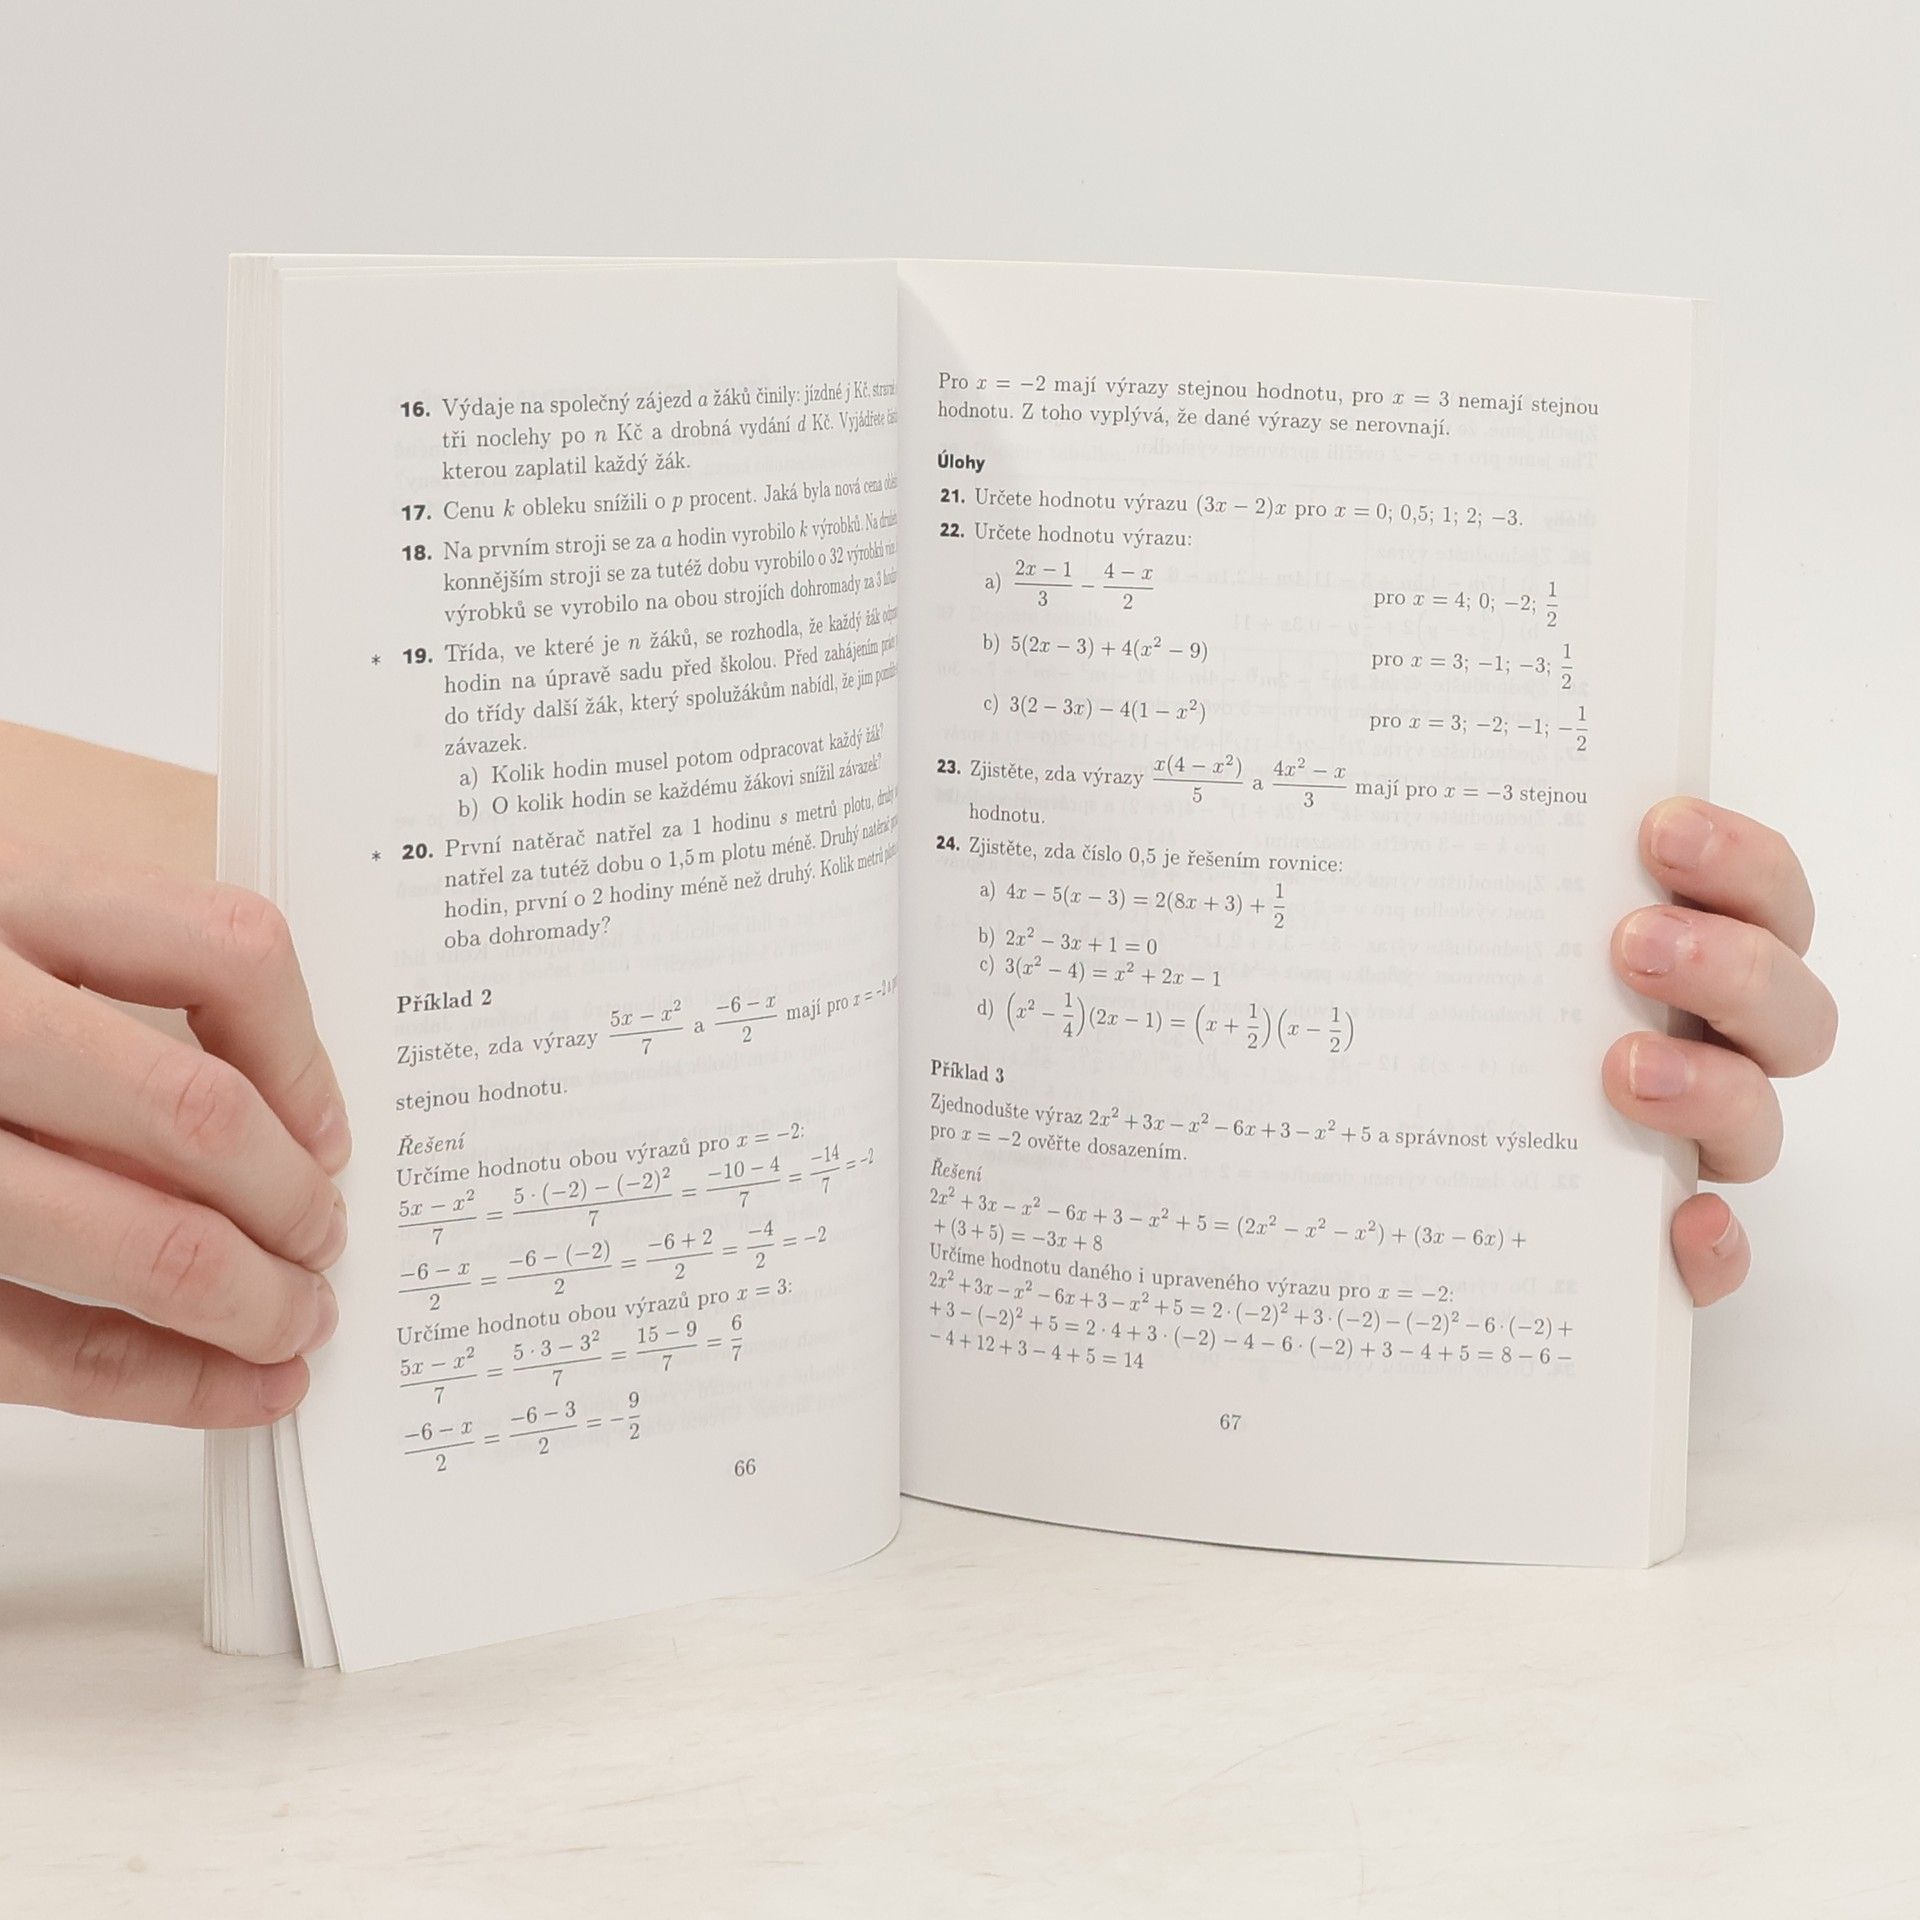 16. Výdaje na společný zájezd a žáků činily: jízdné j Kč,
tři noclehy po n Kč a drobná vydání d Kč. Vyjádřete
kterou zaplatil každý žák.
17. Cenu k obleku snížili o p procent. Jaká byla nová cena
18. Na prvním stroji se za a hodin vyrobilo k výrobků. Na
konnějším stroji se za tutéž dobu vyrobilo o 32 výrobků
výrobků se vyrobilo na obou strojích dohromady za 3
* 19. Třída, ve které je n žáků, se rozhodla, že každý žák
hodin na úpravě sadu před školou. Před zahájením
do třídy další žák, který spolužákům nabídl, že jim
závazek.
a) Kolik hodin musel potom odpracovat každý žák?
b) O kolik hodin se každému žákovi snížil závazek?
* 20. První natěrač natřel za 1 hodinu s metrů plotu, druhý
natřel za tutéž dobu o 1,5 m plotu méně. Druhý natěrač
hodin, první o 2 hodiny méně než druhý. Kolik metrů
oba dohromady?
Příklad 2
Zjistěte, zda výrazy (5x − x²)/7 a (−6 − x)/2 mají pro x = −2
stejnou hodnotu.
Řešení
Určíme hodnotu obou výrazů pro x = −2:
(5x − x²)/7 = (5 · (−2) − (−2)²)/7 = (−10 − 4)/7 = −14/7 = −2
(−6 − x)/2 = (−6 − (−2))/2 = (−6 + 2)/2 = −4/2 = −2
Určíme hodnotu obou výrazů pro x = 3:
(5x − x²)/7 = (5 · 3 − 3²)/7 = (15 − 9)/7 = 6/7
(−6 − x)/2 = (−6 − 3)/2 = −9/2
66
Pro x = −2 mají výrazy stejnou hodnotu, pro x = 3 nemají stejnou
hodnotu. Z toho vyplývá, že dané výrazy se nerovnají.
Úlohy
21. Určete hodnotu výrazu (3x − 2)x pro x = 0; 0,5; 1; 2; −3.
22. Určete hodnotu výrazu:
a) (2x − 1)/3 − (4 − x)/2 pro x = 4; 0; −2; 1/2
b) 5(2x − 3) + 4(x² − 9) pro x = 3; −1; −3; 1/2
c) 3(2 − 3x) − 4(1 − x²) pro x = 3; −2; −1; −1/2
23. Zjistěte, zda výrazy x(4 − x²)/5 a (4x² − x)/3 mají pro x = −3 stejnou
hodnotu.
24. Zjistěte, zda číslo 0,5 je řešením rovnice:
a) 4x − 5(x − 3) = 2(8x + 3) + 1/2
b) 2x² − 3x + 1 = 0
c) 3(x² − 4) = x² + 2x − 1
d) (x² − 1/4)(2x − 1) = (x + 1/2)(x − 1/2)
Příklad 3
Zjednodušte výraz 2x² + 3x − x² − 6x + 3 − x² + 5 a správnost výsledku
pro x = −2 ověřte dosazením.
Řešení
2x² + 3x − x² − 6x + 3 − x² + 5 = (2x² − x² − x²) + (3x − 6x) +
+ (3 + 5) = −3x + 8
Určíme hodnotu daného i upraveného výrazu pro x = −2:
2x² + 3x − x² − 6x + 3 − x² + 5 = 2 · (−2)² + 3 · (−2) − (−2)² − 6 · (−2) +
+ 3 − (−2)² + 5 = 2 · 4 + 3 · (−2) − 4 − 6 · (−2) + 3 − 4 + 5 = 8 − 6 −
− 4 + 12 + 3 − 4 + 5 = 14
67